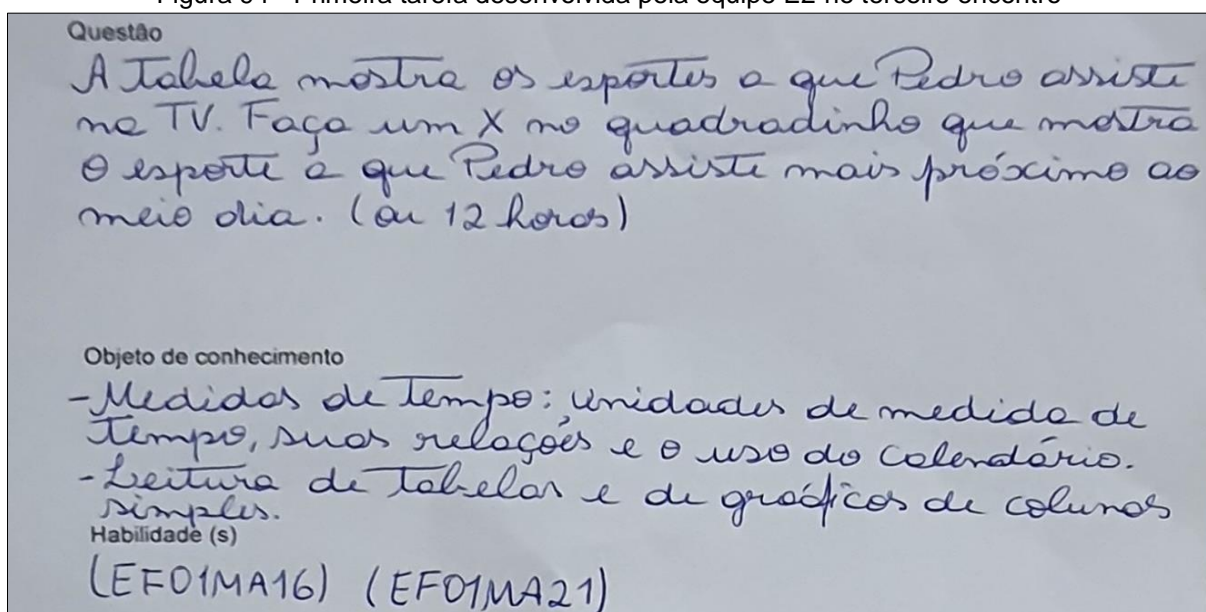 Questão
A Tabela mostra os esportes a que Pedro assiste
na TV. Faça um X no quadradinho que mostra
o esporte a que Pedro assiste mais próximo ao
meio dia. (ou 12 horas)
Objeto de conhecimento
- Medidas de Tempo: unidades de medida de
Tempo, suas relações e o uso do calendário.
- Leitura de Tabelas e de gráficos de colunas
simples.
Habilidade (s)
(EF01MA16) (EF01MA21)